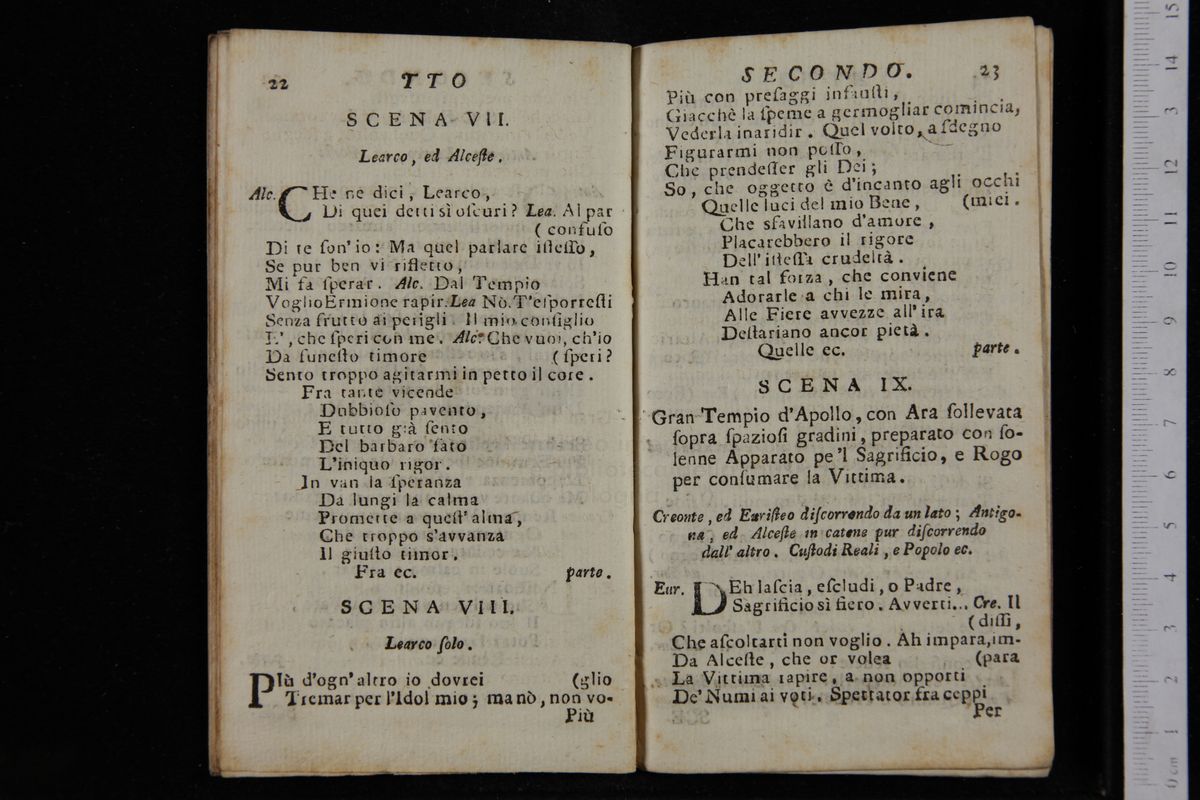 22 TTO
SCENA VII.
Learco, ed Alceſte.
Alc. CHe ne dici, Learco,
Di quei detti sì oſcuri? Lea. Al par
(confuſo
Di te ſon' io: Ma quel parlare iſteſſo,
Se pur ben vi rifletto,
Mi fa ſperar. Alc. Dal Tempio
Voglio Ermione rapir. Lea Nò. T'eſporreſti
Senza frutto ai perigli. Il mio conſiglio
E', che ſperi con me. Alc. Che vuoi, ch'io
Da funeſto timore (ſperi?
Sento troppo agitarmi in petto il core.
Fra tante vicende
Dubbioſo pavento,
E tutto già ſento
Del barbaro fato
L'iniquo rigor.
In van la ſperanza
Da lungi la calma
Promette a queſt' alma,
Che troppo s'avvanza
Il giuſto timor.
Fra ec. parte.
SCENA VIII.
Learco ſolo.
PIù d'ogn' altro io dovrei (glio
Tremar per l'Idol mio; ma nò, non vo-
Più
SECONDO. 23
Più con preſaggi infauſti,
Giacchè la ſpeme a germogliar comincia,
Vederla inaridir. Quel volto, a ſdegno
Figurarmi non poſſo,
Che prendeſſer gli Dei;
So, che oggetto è d'incanto agli occhi
Quelle luci del mio Bene, (miei.
Che sfavillano d'amore,
Placarebbero il rigore
Dell' iſteſſa crudeltà.
Han tal forza, che conviene
Adorarle a chi le mira,
Alle Fiere avvezze all' ira
Deſtariano ancor pietà.
Quelle ec. parte.
SCENA IX.
Gran Tempio d'Apollo, con Ara ſollevata
ſopra ſpazioſi gradini, preparato con ſo-
lenne Apparato pe'l Sagrificio, e Rogo
per conſumare la Vittima.
Creonte, ed Euriſteo diſcorrendo da un lato; Antigo-
na, ed Alceſte in catene pur diſcorrendo
dall' altro. Cuſtodi Reali, e Popolo ec.
Eur. DEh laſcia, eſcludi, o Padre,
Sagrificio sì fiero. Avverti... Cre. Il
(diſſi,
Che aſcoltarti non voglio. Ah impara, im-
Da Alceſte, che or volea (para
La Vittima rapire, a non opporti
De' Numi ai voti. Spettator fra ceppi
Per